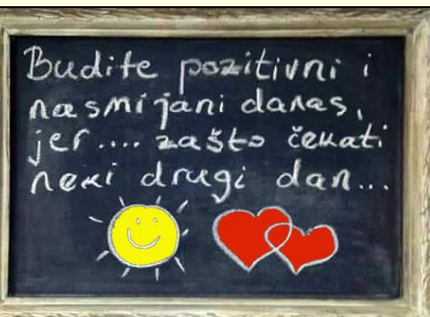 Budite pozitivni i
nasmijani danas,
jer.... zašto čekati
neki drugi dan...